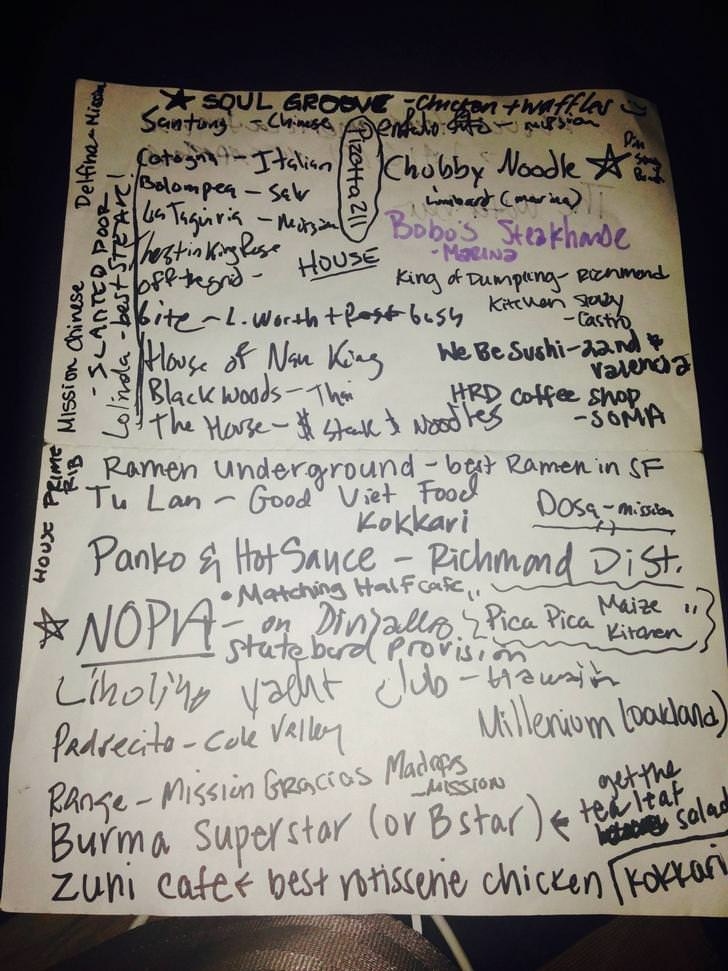 ☆ SOUL GROOVE - Chicken + waffles
Santung - Chinese
- mission
Cotogna - Italian
Pizetta 211
Chubby Noodle ☆
Lombard (marina)
Bolompea - Salv
La Taqueria - Mission
Bobo's Steakhouse
- MARINA
HOUSE
off the grid -
King of Dumpling - Richmond
Kitchen Story
- Castro
bite - L. Worth + Post + bush
House of Nan King
We Be Sushi - 22nd &
valencia
Black woods - Thai
HRD coffee shop
- SOMA
The House - $ Steak & Noodles
Delfina - Mission
Mission Chinese
- SLANTED DOOR
Lolinda - best STEAK!
Ramen Underground - best Ramen in SF
HOUSE PRIME
RIB
Tu Lan - Good Viet Food
Kokkari
Dosa - mission
Panko & Hot Sauce - Richmond Dist.
• Matching Half cafe
☆ NOPA - on
Pica Pica Maize
Kitchen
state bird provision
Liholiho yacht Club - Hawaiin
Millenium (oakland)
Padrecito - Cole Valley
Range - Mission Gracias Madres
- MISSION
Burma Superstar (or B star) ← get the
tea leaf
salad
Zuni cafe ← best rotisserie chicken
Kokkari